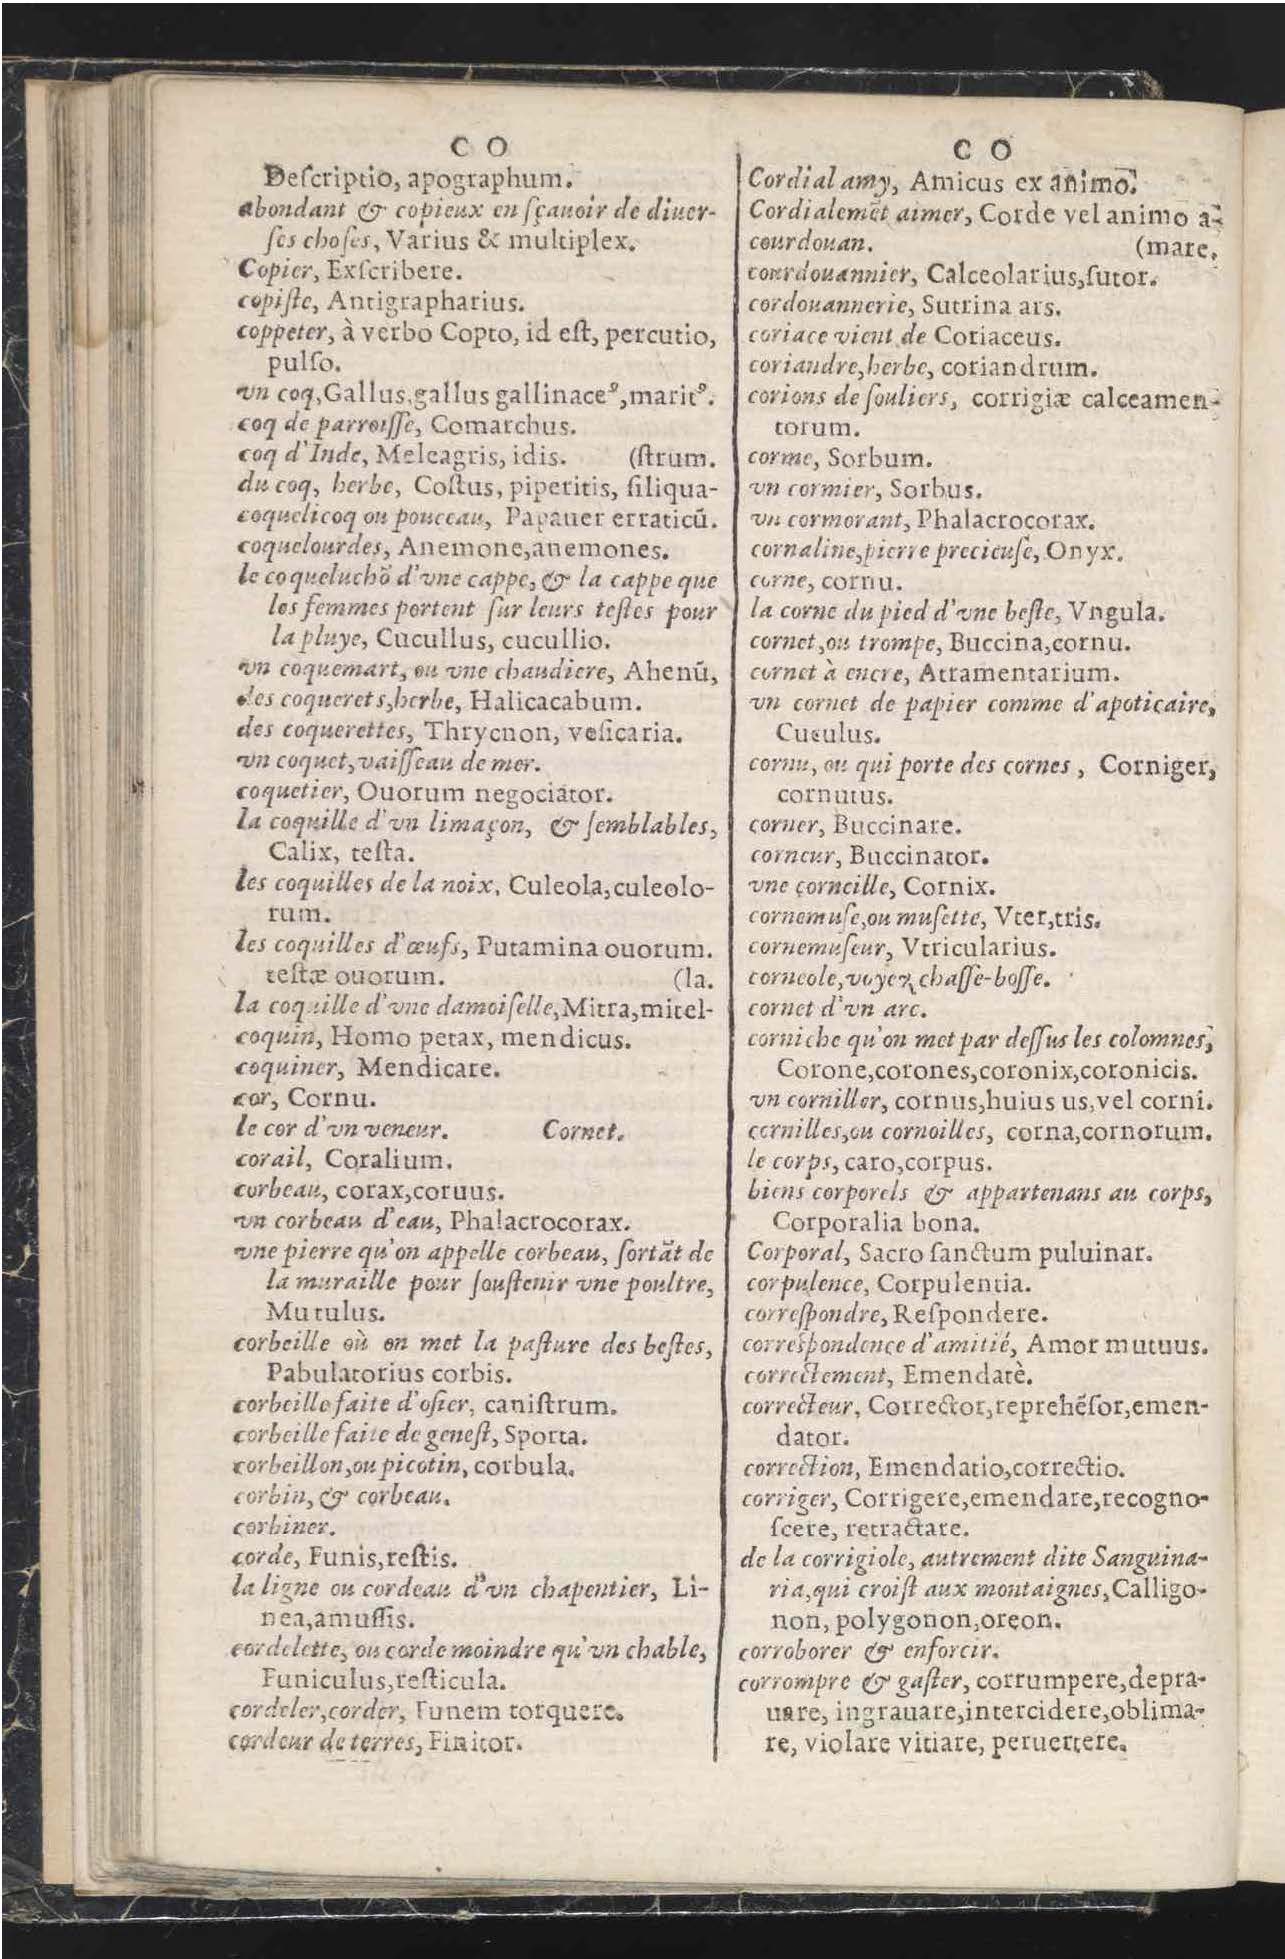 C O
Deſcriptio, apographum.
abondant & copieux en ſçauoir de diuer-
ſes choſes, Varius & multiplex.
Copier, Exſcribere.
copiſte, Antigrapharius.
coppeter, à verbo Copto, id eſt, percutio,
pulſo.
vn coq, Gallus, gallus gallinaceꝰ, maritꝰ.
coq de parroiſſe, Comarchus.
coq d'Inde, Meleagris, idis. (ſtrum.
du coq, herbe, Coſtus, piperitis, ſiliqua-
coquelicoq ou pouceau, Papauer erraticū.
coquelourdes, Anemone, anemones.
le coqueluchõ d'vne cappe, & la cappe que
les femmes portent ſur leurs teſtes pour
la pluye, Cucullus, cucullio.
vn coquemart, ou vne chaudiere, Ahenū,
des coquerets, herbe, Halicacabum.
des coquerettes, Thrycnon, veſicaria.
vn coquet, vaiſſeau de mer.
coquetier, Ouorum negociator.
la coquille d'vn limaçon, & ſemblables,
Calix, teſta.
les coquilles de la noix, Culeola, culeolo-
rum.
les coquilles d'œufs, Putamina ouorum.
teſtæ ouorum. (la.
la coquille d'vne damoiſelle, Mitra, mitel-
coquin, Homo petax, mendicus.
coquiner, Mendicare.
cor, Cornu.
le cor d'vn veneur. Cornet.
corail, Coralium.
corbeau, corax, coruus.
vn corbeau d'eau, Phalacrocorax.
vne pierre qu'on appelle corbeau, ſortãt de
la muraille pour ſouſtenir vne poultre,
Mutulus.
corbeille où on met la paſture des beſtes,
Pabulatorius corbis.
corbeille faite d'oſier, caniſtrum.
corbeille faite de geneſt, Sporta.
corbeillon, ou picotin, corbula.
corbin, & corbeau.
corbiner.
corde, Funis, reſtis.
la ligne ou cordeau d'vn chapentier, Li-
nea, amuſſis.
cordelette, ou corde moindre qu'vn chable,
Funiculus, reſticula.
cordeler, corder, Funem torquere.
cordeur de terres, Finitor.
C O
Cordial amy, Amicus ex animo.
Cordialemẽt aimer, Corde vel animo a-
courdouan. (mare.
courdouannier, Calceolarius, ſutor.
cordouannerie, Sutrina ars.
coriace vient de Coriaceus.
coriandre, herbe, coriandrum.
corions de ſouliers, corrigiæ calceamen-
torum.
corme, Sorbum.
vn cormier, Sorbus.
vn cormorant, Phalacrocorax.
cornaline, pierre precieuſe, Onyx.
corne, cornu.
la corne du pied d'vne beſte, Vngula.
cornet, ou trompe, Buccina, cornu.
cornet à encre, Atramentarium.
vn cornet de papier comme d'apoticaire,
Cuculus.
cornu, ou qui porte des cornes, Corniger,
cornutus.
corner, Buccinare.
corneur, Buccinator.
vne corneille, Cornix.
cornemuſe, ou muſette, Vter, tris.
cornemuſeur, Vtricularius.
corneole, voyez chaſſe-boſſe.
cornet d'vn arc.
corniche qu'on met par deſſus les colomnes,
Corone, corones, coronix, coronicis.
vn corniller, cornus, huius us, vel corni.
cornilles, ou cornoilles, corna, cornorum.
le corps, caro, corpus.
biens corporels & appartenans au corps,
Corporalia bona.
Corporal, Sacro ſanctum puluinar.
corpulence, Corpulentia.
correſpondre, Reſpondere.
correſpondence d'amitié, Amor mutuus.
correctement, Emendatè.
correcteur, Corrector, reprehẽſor, emen-
dator.
correction, Emendatio, correctio.
corriger, Corrigere, emendare, recogno-
ſcere, retractare.
de la corrigiole, autrement dite Sanguina-
ria, qui croiſt aux montaignes, Calligo-
non, polygonon, oreon.
corroborer & enforcir.
corrompre & gaſter, corrumpere, depra-
uare, ingrauare, intercidere, oblima-
re, violare vitiare, peruertere.